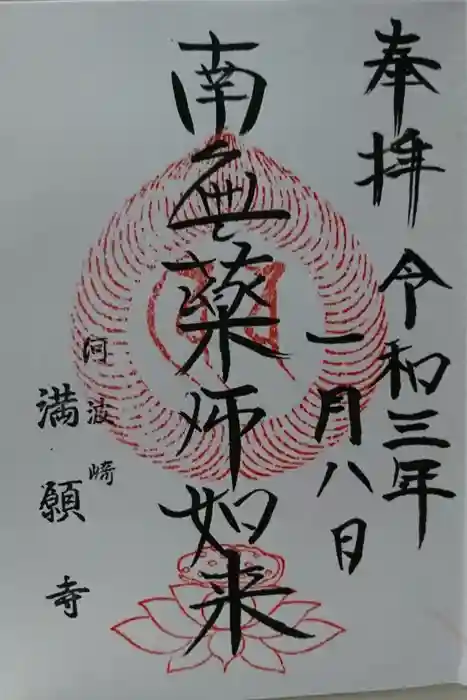 奉拝 令和三年
一月八日
南無薬師如来
阿波崎
満願寺